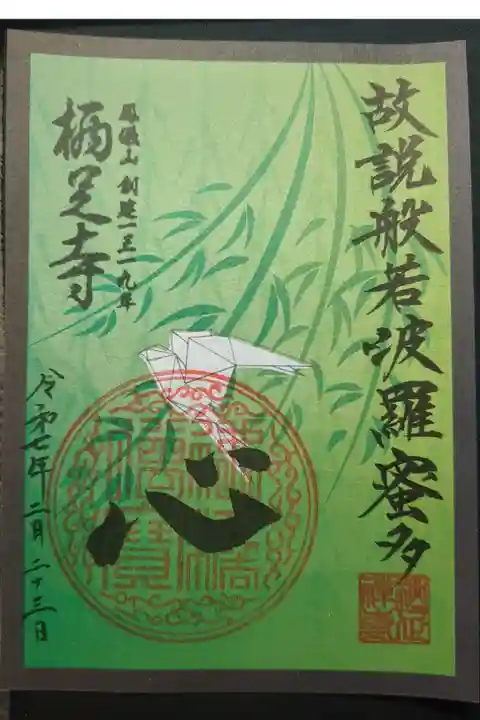 故説般若波羅蜜多
心
鳳儀山 創建一三一九年
栖足寺
令和七年 二月 二十三日